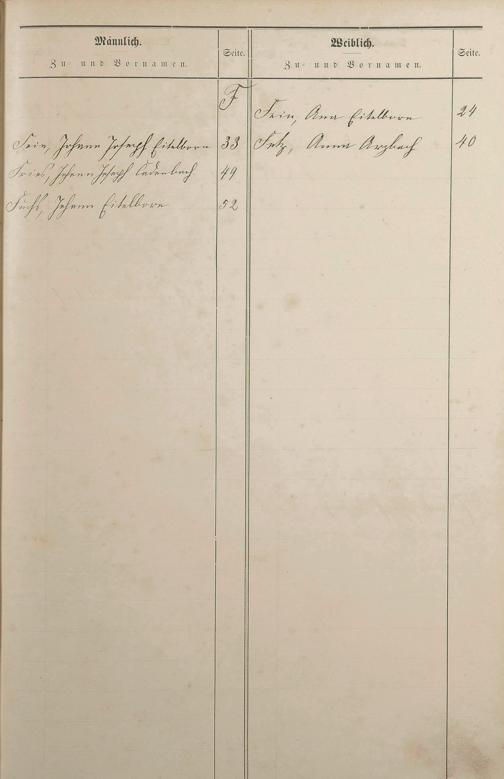 Männlich.
Zu- und Vornamen.
Seite.
Weiblich.
Zu- und Vornamen.
Seite.
F
Fein, Ana Eitelborn 24
Fein, Johann Joseph Eitelborn 33
Fetz, Anna Arzbach 40
Fries, Johann Joseph Cadenbach 49
Fuchs, Johann Eitelborn 52